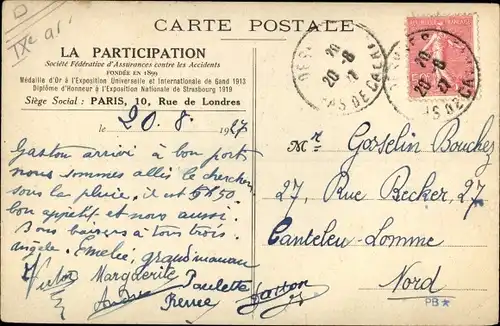 IXe ar
CARTE POSTALE
LA PARTICIPATION
Société Fédérative d'Assurances contre les Accidents
FONDÉE EN 1899
Médaille d'Or à l'Exposition Universelle et Internationale de Gand 1913
Diplôme d'Honneur à l'Exposition Nationale de Strasbourg 1919
Siège Social : PARIS, 10, Rue de Londres
le 20. 8. 1927
Gaston arrivé à bon port
nous sommes allés le chercher
sous la pluie, il est 5h50
bon appétit et nous aussi.
Bons baisers à tous trois.
Angèle. Emelie, grand'maman
Victor Marguerite
Andrée Paulette
Renée Gaston
RÉPUBLIQUE FRANÇAISE
20 -8
27
PAS DE CALAIS
20 -8
27
Mr Gosselin Bouchez
27, Rue Becker, 27
Canteleu-Lomme
Nord
PB*